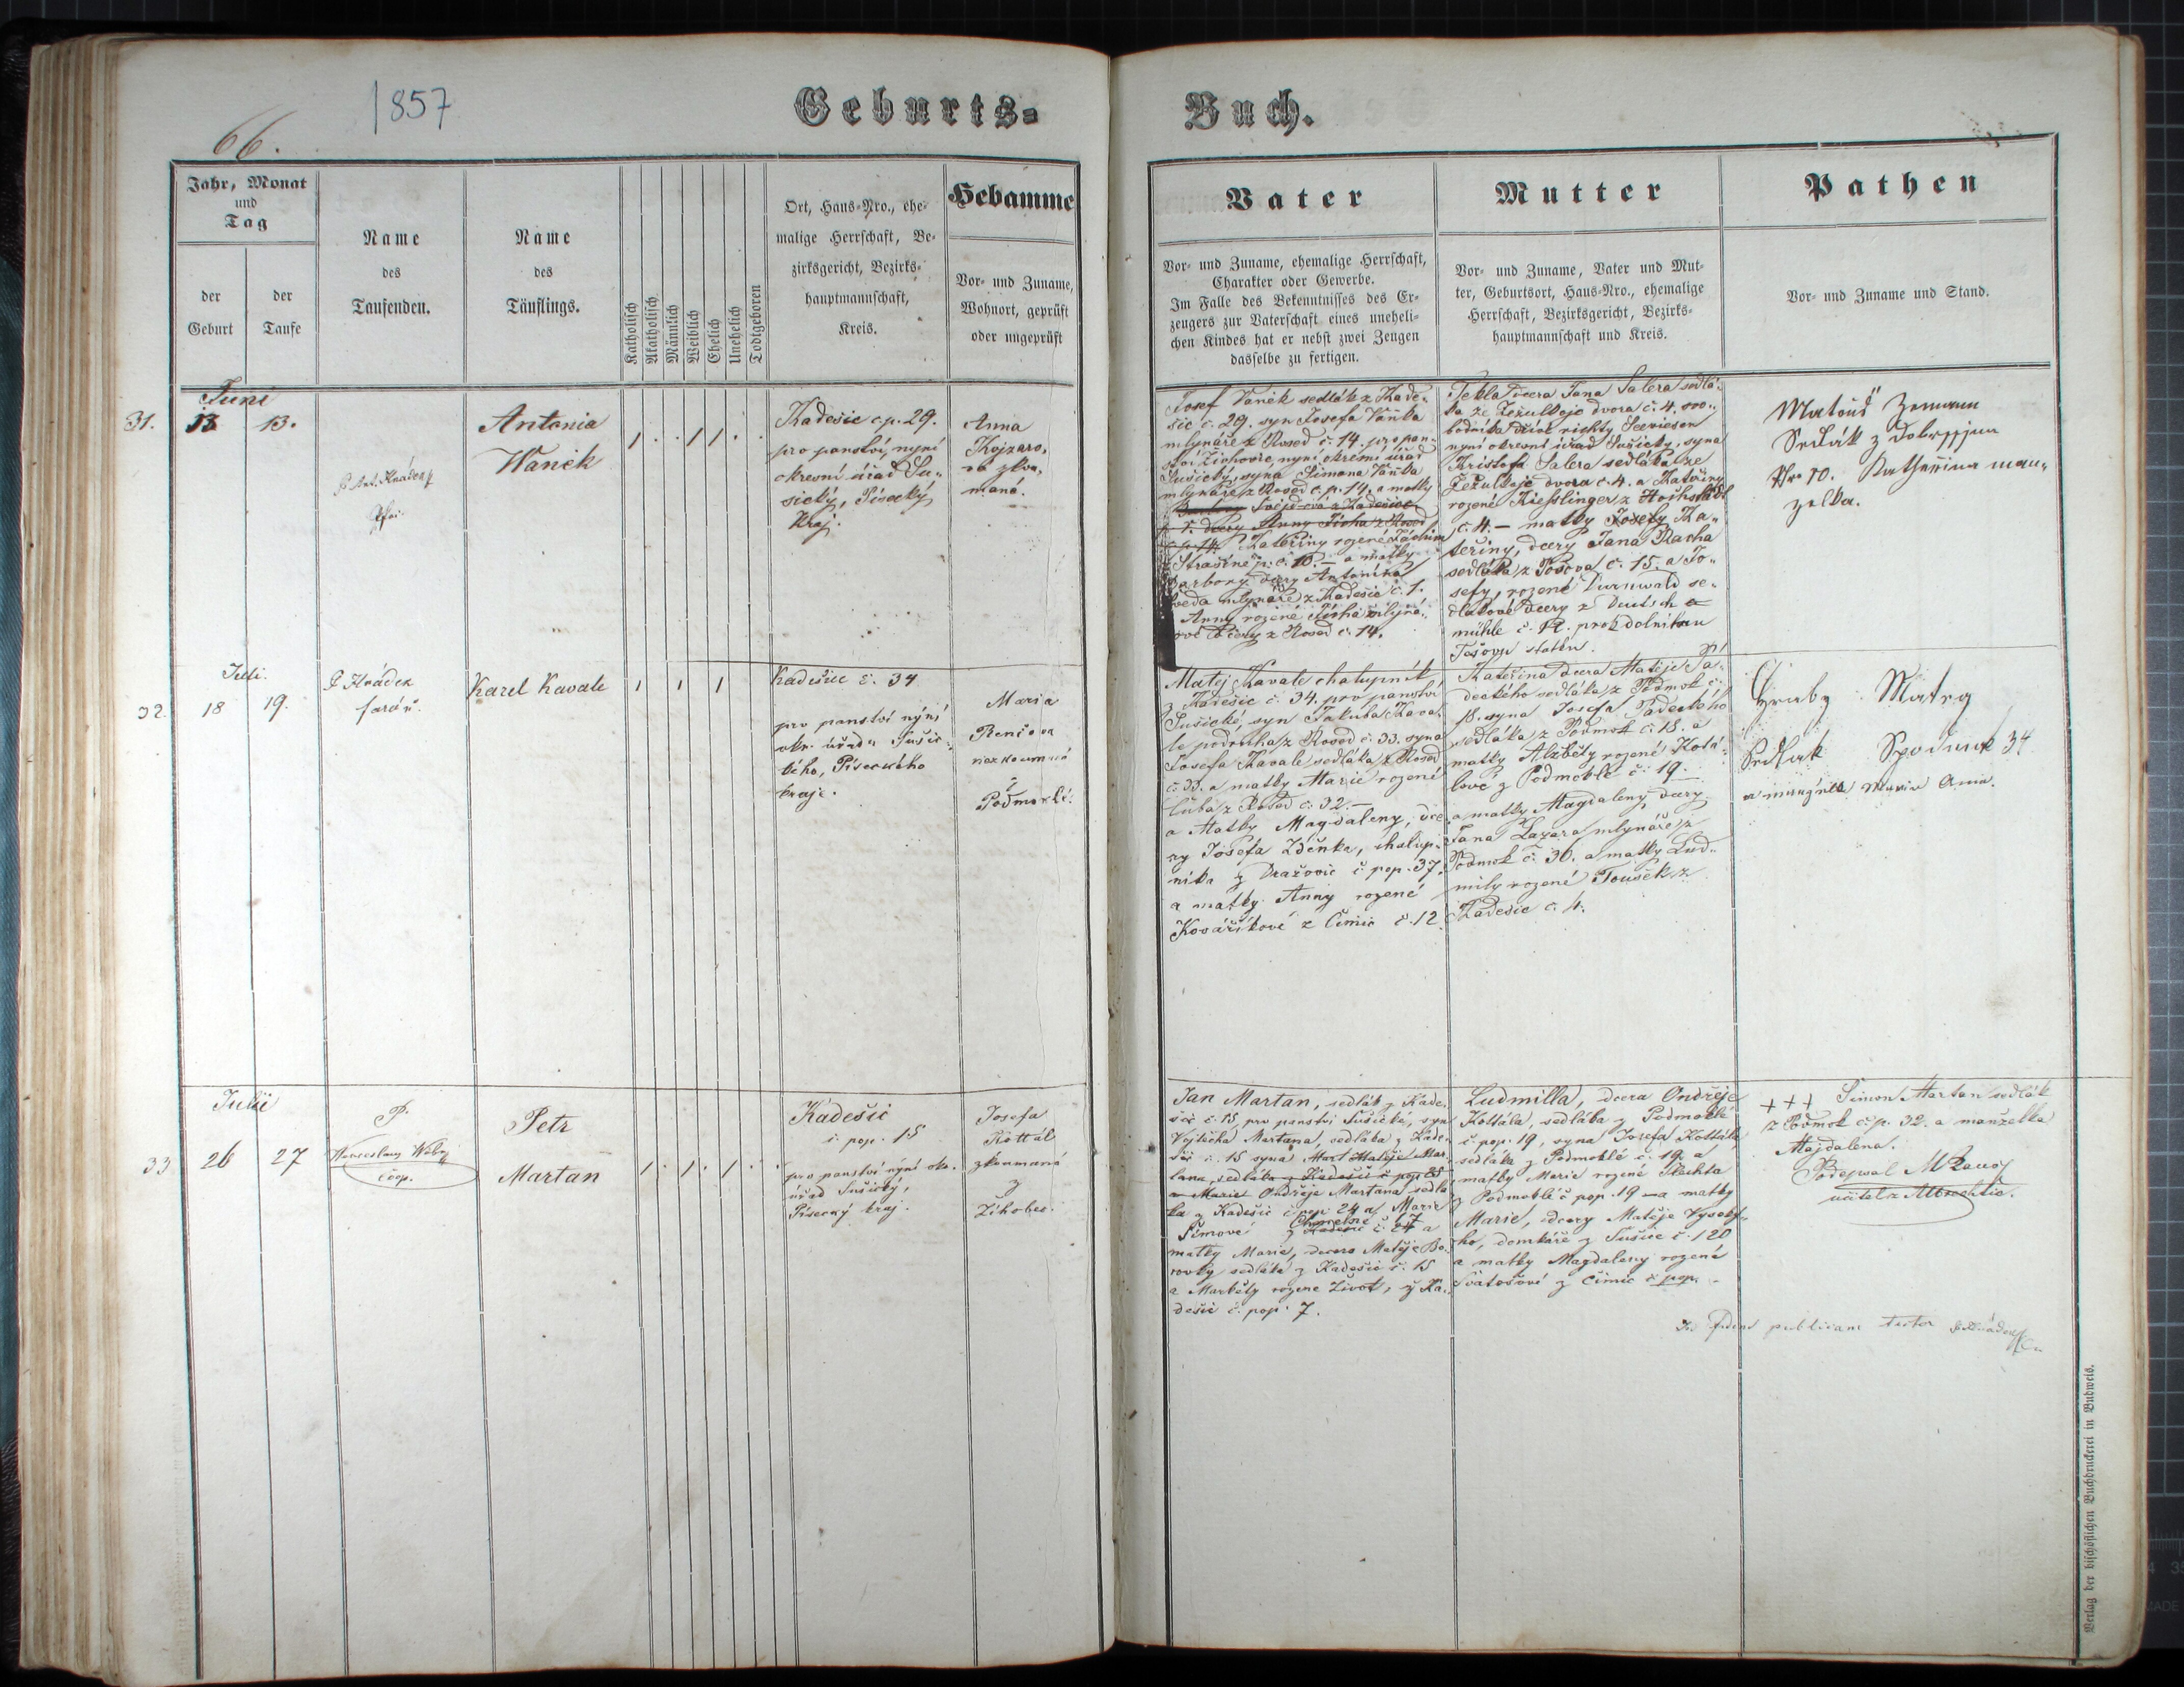 66.
1857
Geburts=
Buch.
Jahr, Monat
und
Tag
der
Geburt
der
Taufe
Name
des
Taufenden.
Name
des
Täuflings.
Katholisch
Akatholisch
Männlich
Weiblich
Ehelich
Unehelich
Todtgeboren
Ort, Haus-Nro., ehe-
malige Herrschaft, Be-
zirksgericht, Bezirks-
hauptmannschaft,
Kreis.
Hebamme
Vor- und Zuname,
Wohnort, geprüft
oder ungeprüft
Vater
Vor- und Zuname, ehemalige Herrschaft,
Charakter oder Gewerbe.
Im Falle des Bekenntnisses des Er-
zeugers zur Vaterschaft eines uneheli-
chen Kindes hat er nebst zwei Zeugen
dasselbe zu fertigen.
Mutter
Vor- und Zuname, Vater und Mut-
ter, Geburtsort, Haus-Nro., ehemalige
Herrschaft, Bezirksgericht, Bezirks-
hauptmannschaft und Kreis.
Pathen
Vor- und Zuname und Stand.
Juni
31. 13 13.
P. Ant. Hrádek
Antonia
Wanék
1 . . 1 1 . .
Kadešic č.p. 29.
pro panství, nyní
okresní úřad Su-
sický, Písecký
Kraj.
Anna
zkou-
maná.
Josef Vaněk sedlák z Kade-
šic č. 29. syn Josefa Vaňka
mlynáře z Rosed č. 14. pro pan-
ství Žichovre, nyní okresní úřad
Sušický, syna Šimona Vaňka
mlynáře z Rosed č.p. 14. a matky
Kateřiny rozené
z Strašíně p. č. 10. – a matky
Barbory dcery Antonína
mlynáře z Kadešic č. 1.
Anny rozené Tichá mlyná-
rové dcery z Rosed č. 14.
Tekla dcera Jana Salera sedlá-
ka ze Zežulkoje dvora č. 4.
nyní okresní úřad Sušický, syna
Kristofa Salera sedláka ze
Zežulkoje dvora č. 4. a Kateřiny
rozené Kiesslinger z
č. 4 – matky Josefy Ka-
teřiny, dcery Jana Racha
sedláka z č. 15. a Jo-
sefy, rozené se-
dlákové dcery z Deutsch
mühle č. 12.
statku.
Matouš Zemann
Sedlák z
Nr 10. Katherina man-
zelka.
Juli.
32. 18 19.
P. Hrádek
farář.
Karel Kavale
1 1 1
Kadešic č. 34
pro panství nýní
okr. úřadu Sušic-
kého, Píseckého
kraje.
Maria
Renčova
nezkoumaná
z
Podmoklí.
Matej Kavale chalupník
z Kadešic č. 34. pro panství
Sušické, syn Jakuba Kava-
le podruha z Rosed č. 33. syna
Josefa Kavale sedláka z Rosed
č. 33. a matky Marie rozené
z Rosed č. 32. –
a Matky Magdaleny, dce-
ry Josefa Zděnka, chalup-
níka z Dražovic č pop. 37.
a matky Anny rozené
Kosáříkové z Čimic č. 12.
Kateřina dcera Matěje Pa-
deckého sedláka z Podmok č.
18. syna Josefa Padeckého
sedláka z Podmok č. 18. a
matky Alzběty rozené Kotá-
lové z Podmoklé č. 19.
a matky Magdaleny, dcery
Jana Lazara mlynáře z
Podmok č. 36. a matky Lud-
mily rozené Toušek z
Kadešic č. 4.
Hruby Matey
Sedlak 34
Maria Anna.
Julii
33 26 27
P.
Wenceslaus
coop.
Petr
Martan
1 . 1 . 1 . .
Kadešic
č. pop. 15
pro panství nýní okr.
úřad Sušický,
Písecký kraj.
Josefa
Kottál
zkoumaná
z
Žihobec.
Jan Martan, sedlák z Kade-
šic č. 15, pro panství Sušické, syn
Vojtěcha Martana, sedláka z Kade-
šic č. 15 syna Mart Matěje Mar-
tana, sedláka z Kadešic č pop 25
a Marie Ondřeje Martana sedlá-
ka z Kadešic č pop. 24 a Marie
Šimové z Kadešic č. 24 Chmelné 17 a
matky Marie, dcera Matěje Bo-
rovky sedláka z Kadešic č. 15
a Markéty rozene Život, z Ka-
dešic č. pop. 7.
Ludmilla, dcera Ondřeje
Kottála, sedláka z Podmoklé
č. pop. 19, syna Josefa Kottála
sedláka z Podmoklé č. 19. a
matky Marie rozené Plechta
z Podmoklé č pop. 19 – a matky
Marie, dcery Matěje Vysoký-
ho, domkáře z Sušice č. 120
a matky Magdaleny rozené
Svatošové z Čimic č pop. –
+++ Šimon Martan sedlák
z Podmok č.p. 32. a manželka
Majdalena.
Podepsal
učitel z Albrechtic.
In fidem publicam testor
Verlag der bischöflichen Buchdruckerei in Budweis.